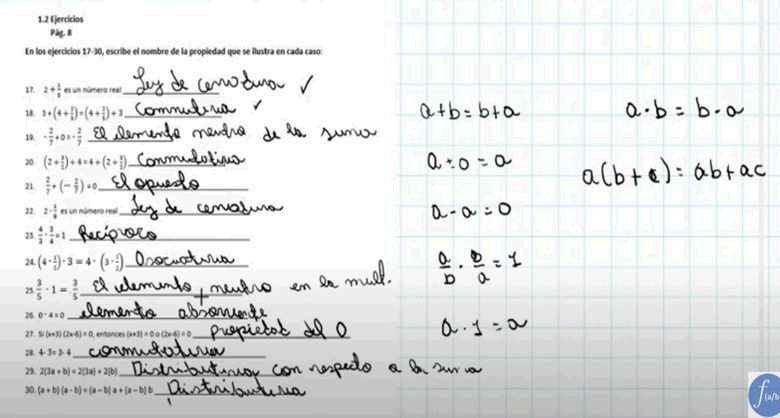 1.2 Ejercicios
Pág. 8
En los ejercicios 17-30, escribe el nombre de la propiedad que se ilustra en cada caso:
17. 2 + 1/3 es un número real Ley de cerradura ✓
18. 3 + (4 + ) = (4 + ) + 3 Conmutativa ✓
19. -2/7 + 0 = -2/7 El elemento neutro de la suma
20. (2 + ) + 4 = 4 + (2 + ) Conmutativa
21. 2/7 + (-2/7) = 0 El opuesto
22. 2 · es un número real Ley de cerradura
23. 4/3 · 3/4 = 1 Recíproco
24. (4 · ) · 3 = 4 · (3 · ) Asociativa
25. 3/5 · 1 = 3/5 El elemento neutro en la mult.
26. 0 · 4 = 0 elemento absorvente
27. Si (x+3) (2x-6) = 0, entonces (x+3) = 0 o (2x-6) = 0 propiedad del 0
28. 4 · 3 = 3 · 4 conmutativa
29. 2(3a + b) = 2(3a) + 2(b) Distributiva con respecto a la suma
30. (a + b) (a - b) = (a - b) a + (a - b) b Distributiva
a+b=b+a
a+0=a
a-a=0
a/b · b/a = 1
a·1=a
a·b=b·a
a(b+c)=ab+ac
f(a/b)